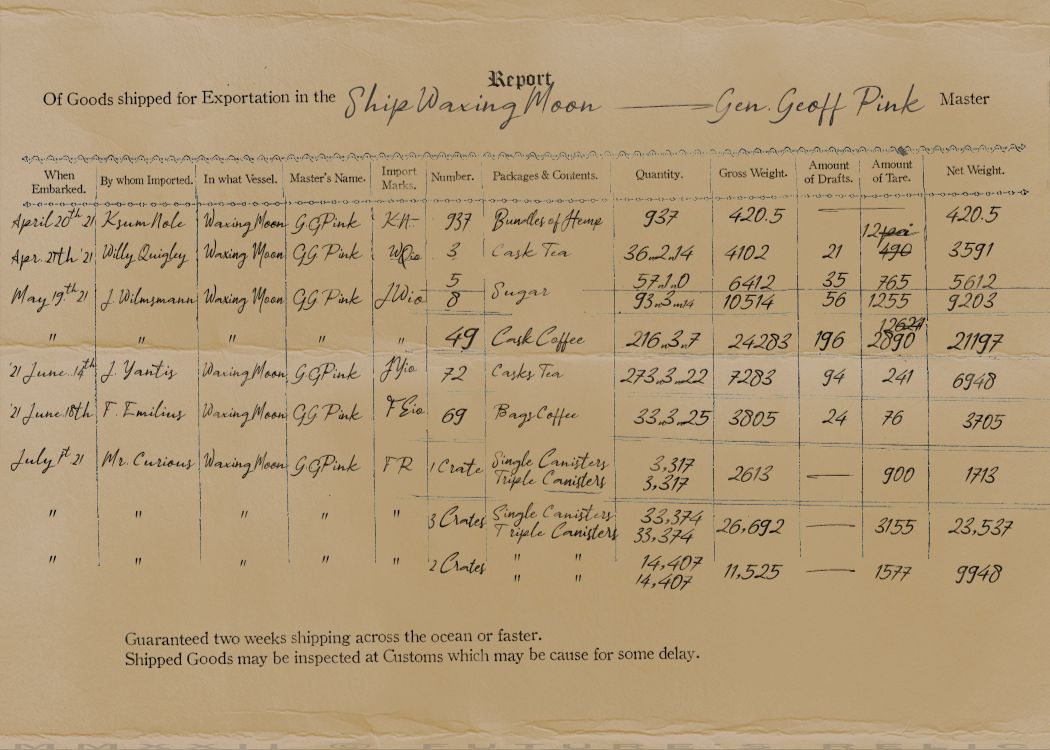 Report
Of Goods shipped for Exportation in the Ship Waxing Moon — Gen. Geoff Pink Master
When Embarked. By whom Imported. In what Vessel. Master's Name. Import Marks. Number. Packages & Contents. Quantity. Gross Weight. Amount of Drafts. Amount of Tare. Net Weight.
April 20th '21 Ksum Nole Waxing Moon G.G Pink KN 937 Bundles of Hemp 937 420.5 — 420.5
Apr. 27th '21 Willy Quigley Waxing Moon GG Pink WQio 3 Cask Tea 36..2..14 4102 21 490 3591
5 57..1..0 6412 35 765 5612
May 19th 21 J. Wilmsmann Waxing Moon GG Pink JWio 8 Sugar 93..3..14 10514 56 1255 9203
" " " " " 49 Cask Coffee 216..3..7 24283 196 2890 21197
'21 June 14th J. Yantis Waxing Moon G.G Pink JYio 72 Casks Tea 273..3..22 7283 94 241 6948
'21 June 18th F. Emilius Waxing Moon GG Pink FEio 69 Bags Coffee 33..3..25 3805 24 76 3705
July 1st 21 Mr. Curious Waxing Moon G.G Pink FR 1 Crate Single Canisters 3,317 2613 — 900 1713
Triple Canisters 3,317
" " " " " 3 Crates Single Canisters 33,374 26,692 — 3155 23,537
Triple Canisters 33,374
" " " " " 2 Crates " " 14,407 11,525 — 1577 9948
" " 14,407
Guaranteed two weeks shipping across the ocean or faster.
Shipped Goods may be inspected at Customs which may be cause for some delay.